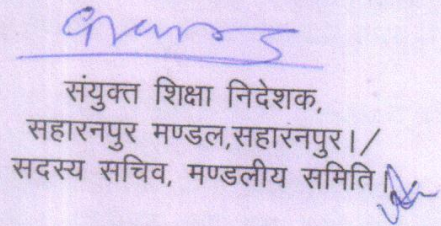 संयुक्त शिक्षा निदेशक,
सहारनपुर मण्डल,सहारनपुर।/
सदस्य सचिव, मण्डलीय समिति।